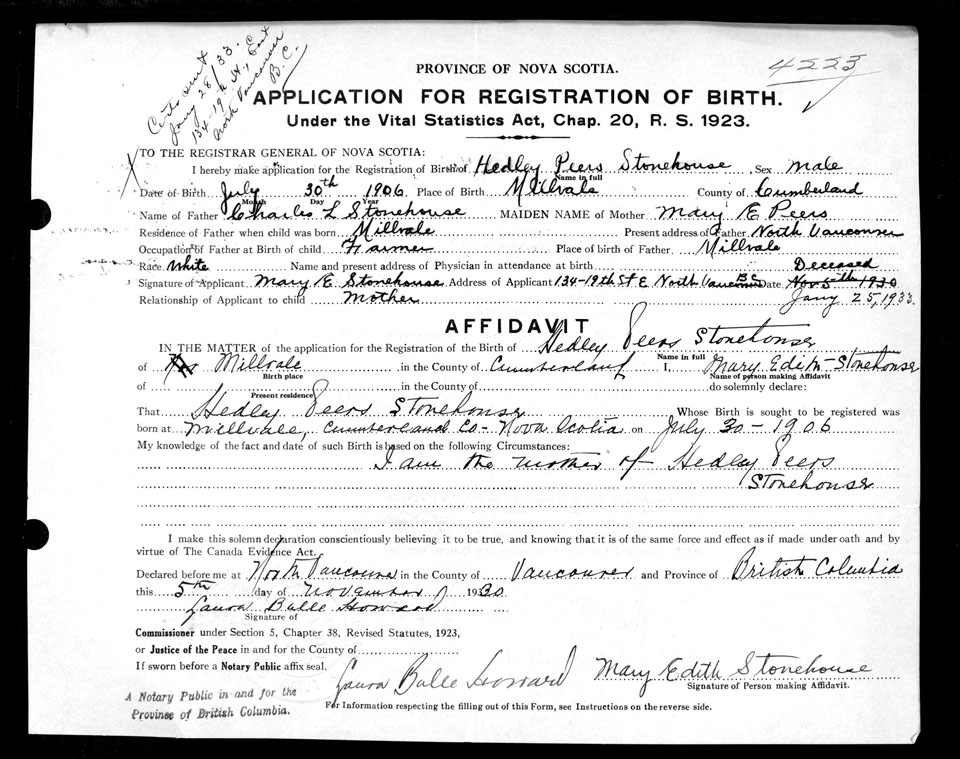 Certs sent
Jany 28/33.
134-19th St., East
North Vancouver
B.C.
4223
PROVINCE OF NOVA SCOTIA.
APPLICATION FOR REGISTRATION OF BIRTH.
Under the Vital Statistics Act, Chap. 20, R. S. 1923.
TO THE REGISTRAR GENERAL OF NOVA SCOTIA:
I hereby make application for the Registration of Birth of Hedley Peers Stonehouse Sex Male
Name in full
Date of Birth July 30th 1906 Place of Birth Millvale County of Cumberland
Month Day Year
Name of Father Charles L Stonehouse MAIDEN NAME of Mother Mary E Peers
Residence of Father when child was born Millvale Present address of Father North Vancouver
Occupation of Father at Birth of child Farmer Place of birth of Father Millvale
Race White Name and present address of Physician in attendance at birth Deceased
Signature of Applicant Mary E. Stonehouse Address of Applicant 134-19th St E North Vancouver BC Date Nov 5th 1930
Relationship of Applicant to child Mother Jany 25, 1933
AFFIDAVIT
IN THE MATTER of the application for the Registration of the Birth of Hedley Peers Stonehouse
Name in full
of Millvale in the County of Cumberland I, Mary Edith Stonehouse
Birth place Name of person making Affidavit
of in the County of do solemnly declare:
Present residence
That Hedley Peers Stonehouse Whose Birth is sought to be registered was
born at Millvale, Cumberland Co- Nova Scotia on July 30-1906
My knowledge of the fact and date of such Birth is based on the following Circumstances:
I am the mother of Hedley Peers
Stonehouse
I make this solemn declaration conscientiously believing it to be true, and knowing that it is of the same force and effect as if made under oath and by
virtue of The Canada Evidence Act.
Declared before me at North Vancouver in the County of Vancouver and Province of British Columbia
this 5th day of November 1930
Laura Balle Howard
Signature of
Commissioner under Section 5, Chapter 38, Revised Statutes, 1923,
or Justice of the Peace in and for the County of
If sworn before a Notary Public affix seal.
Laura Balle Howard Mary Edith Stonehouse
Signature of Person making Affidavit.
A Notary Public in and for the
Province of British Columbia.
For Information respecting the filling out of this Form, see Instructions on the reverse side.